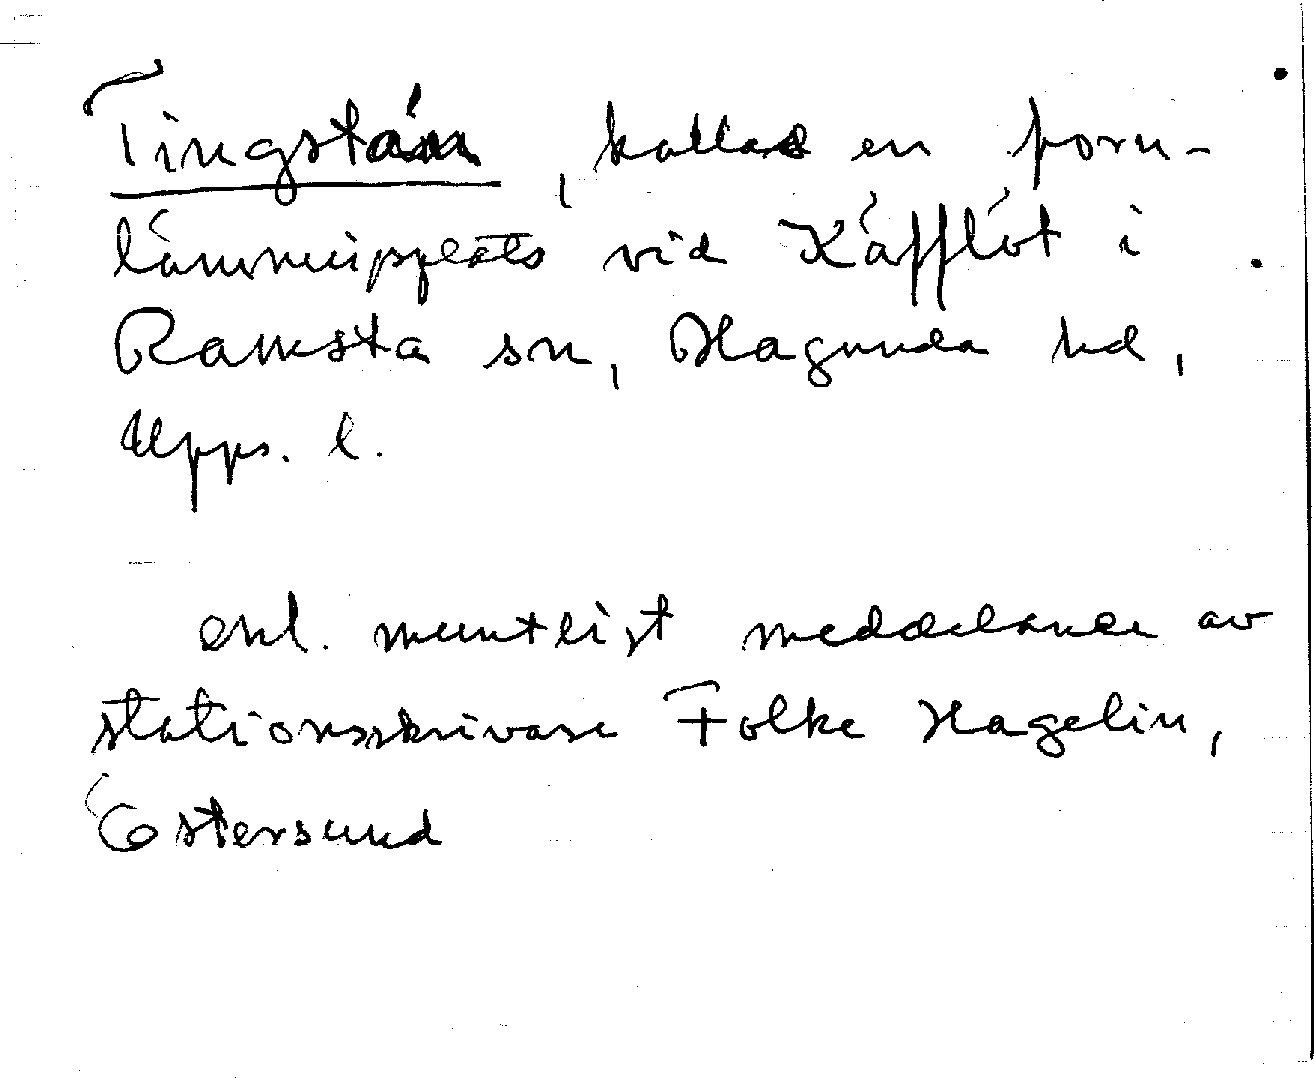 , kallas en forn-
lämningsplats vid Käfflöt i
Ramsta sn, Hagunda hd,
Upps. l.
enl. muntligt meddelande av
stationsskrivare Folke Hagelin,
Östersund